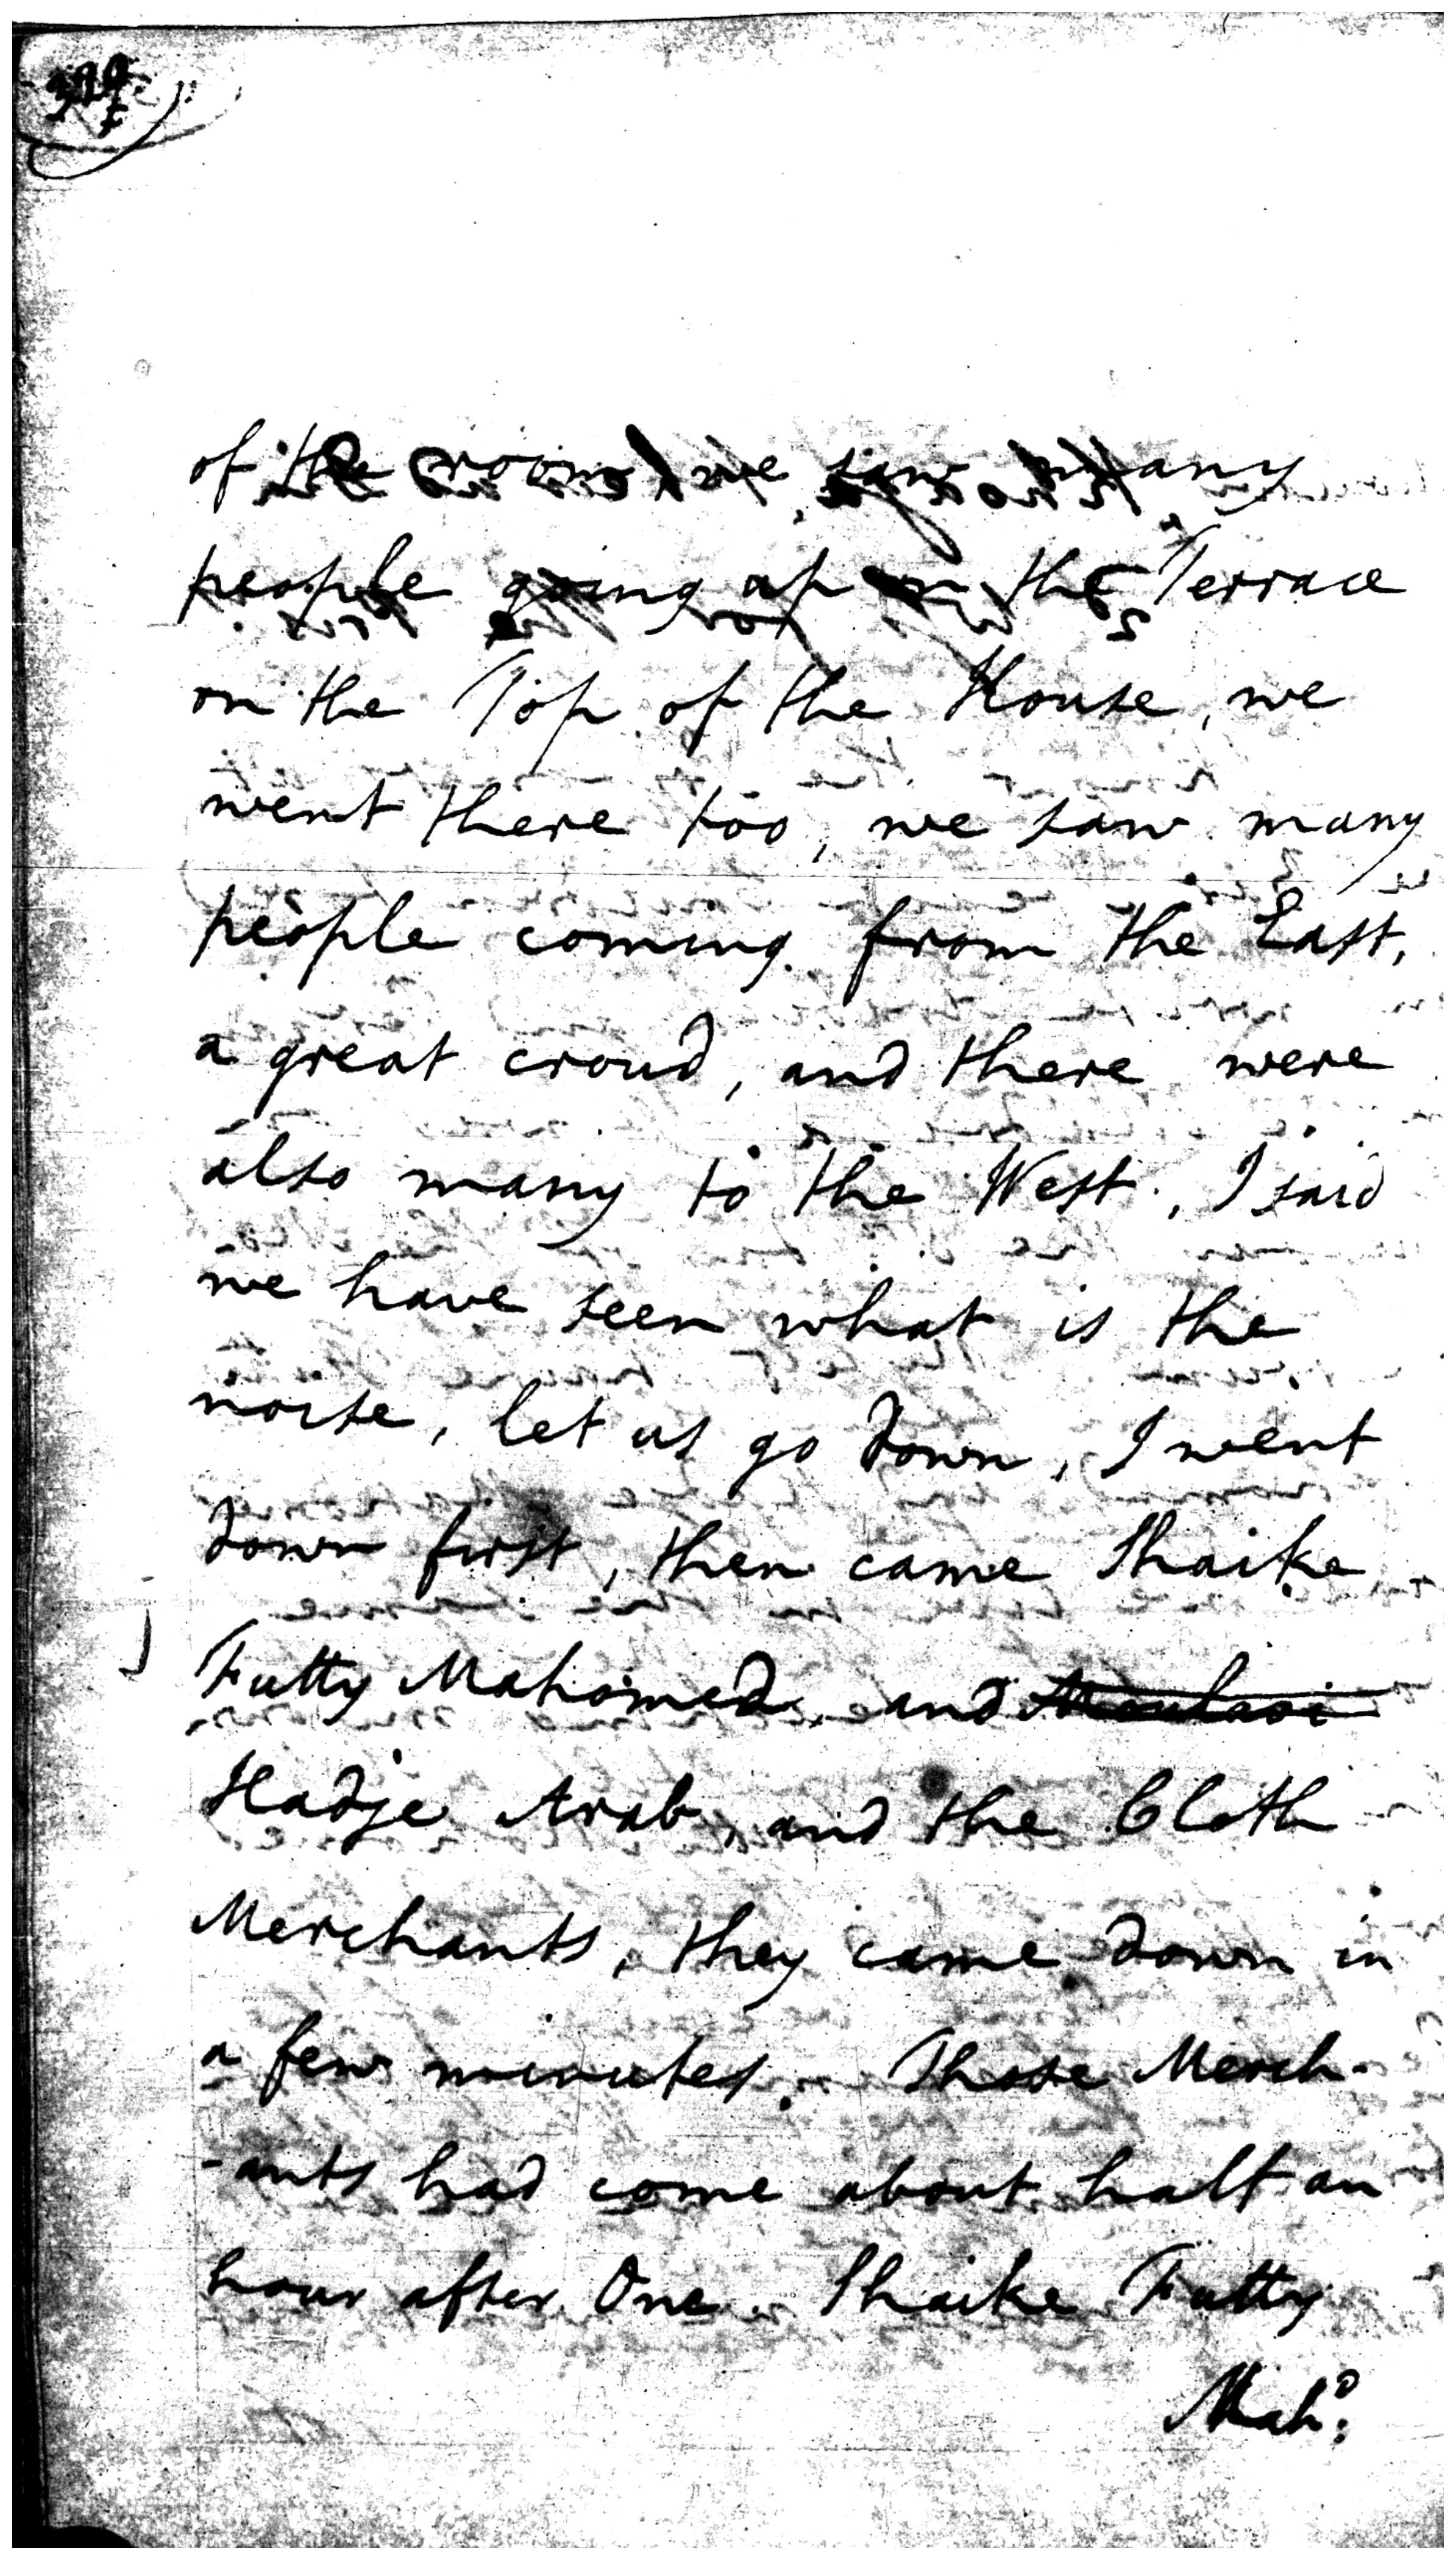 of the room, we saw many
people going up on the Terrace
on the Top of the House, we
went there too, we saw many
people coming from the East,
a great croud, and there were
also many to the West, I said
we have seen what is the
noise, let us go down, I went
down first, then came Shaike
Futty Mahomed and Moulavi
Hadje Arab, and the Cloth
Merchants, they came down in
a few minutes. Those Merch-
-ants had come about half an
hour after One. Shaike Futty
Mah.d